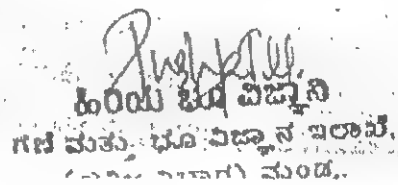 ಹಿರಿಯ ಭೂ ವಿಜ್ಞಾನಿ
ಗಣಿ ಮತ್ತು ಭೂ ವಿಜ್ಞಾನ ಇಲಾಖೆ,
ಮಂಡ್ಯ